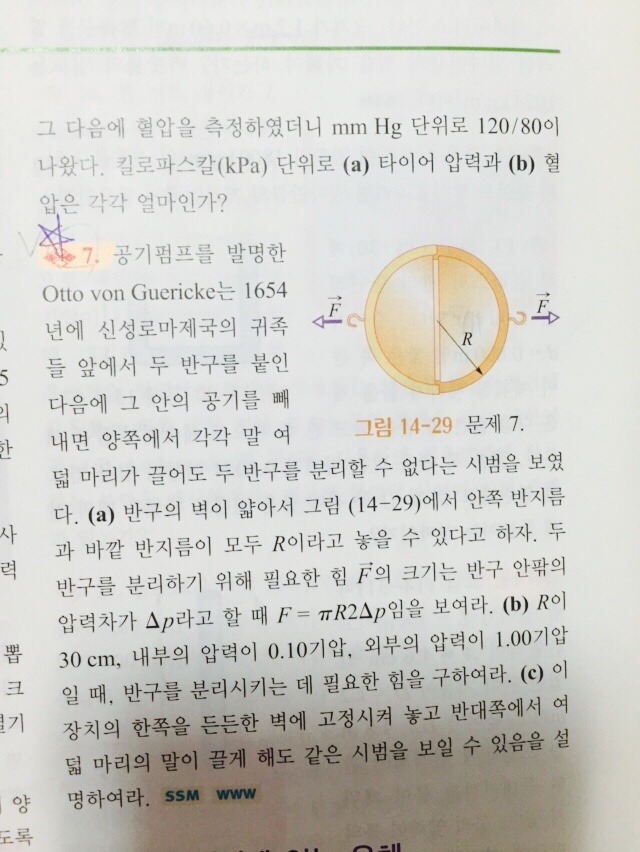 그 다음에 혈압을 측정하였더니 mm Hg 단위로 120/80이
나왔다. 킬로파스칼(kPa) 단위로 (a) 타이어 압력과 (b) 혈
압은 각각 얼마인가?
7. 공기펌프를 발명한
Otto von Guericke는 1654
년에 신성로마제국의 귀족
들 앞에서 두 반구를 붙인
다음에 그 안의 공기를 빼
내면 양쪽에서 각각 말 여
덟 마리가 끌어도 두 반구를 분리할 수 없다는 시범을 보였
다. (a) 반구의 벽이 얇아서 그림 (14-29)에서 안쪽 반지름
과 바깥 반지름이 모두 R이라고 놓을 수 있다고 하자. 두
반구를 분리하기 위해 필요한 힘 F⃗의 크기는 반구 안팎의
압력차가 Δp라고 할 때 F = πR2Δp임을 보여라. (b) R이
30 cm, 내부의 압력이 0.10기압, 외부의 압력이 1.00기압
일 때, 반구를 분리시키는 데 필요한 힘을 구하여라. (c) 이
장치의 한쪽을 든든한 벽에 고정시켜 놓고 반대쪽에서 여
덟 마리의 말이 끌게 해도 같은 시범을 보일 수 있음을 설
명하여라. SSM WWW
F⃗
F⃗
R
그림 14-29 문제 7.
5
의
한
사
력
뽑
크
열기
양
도록